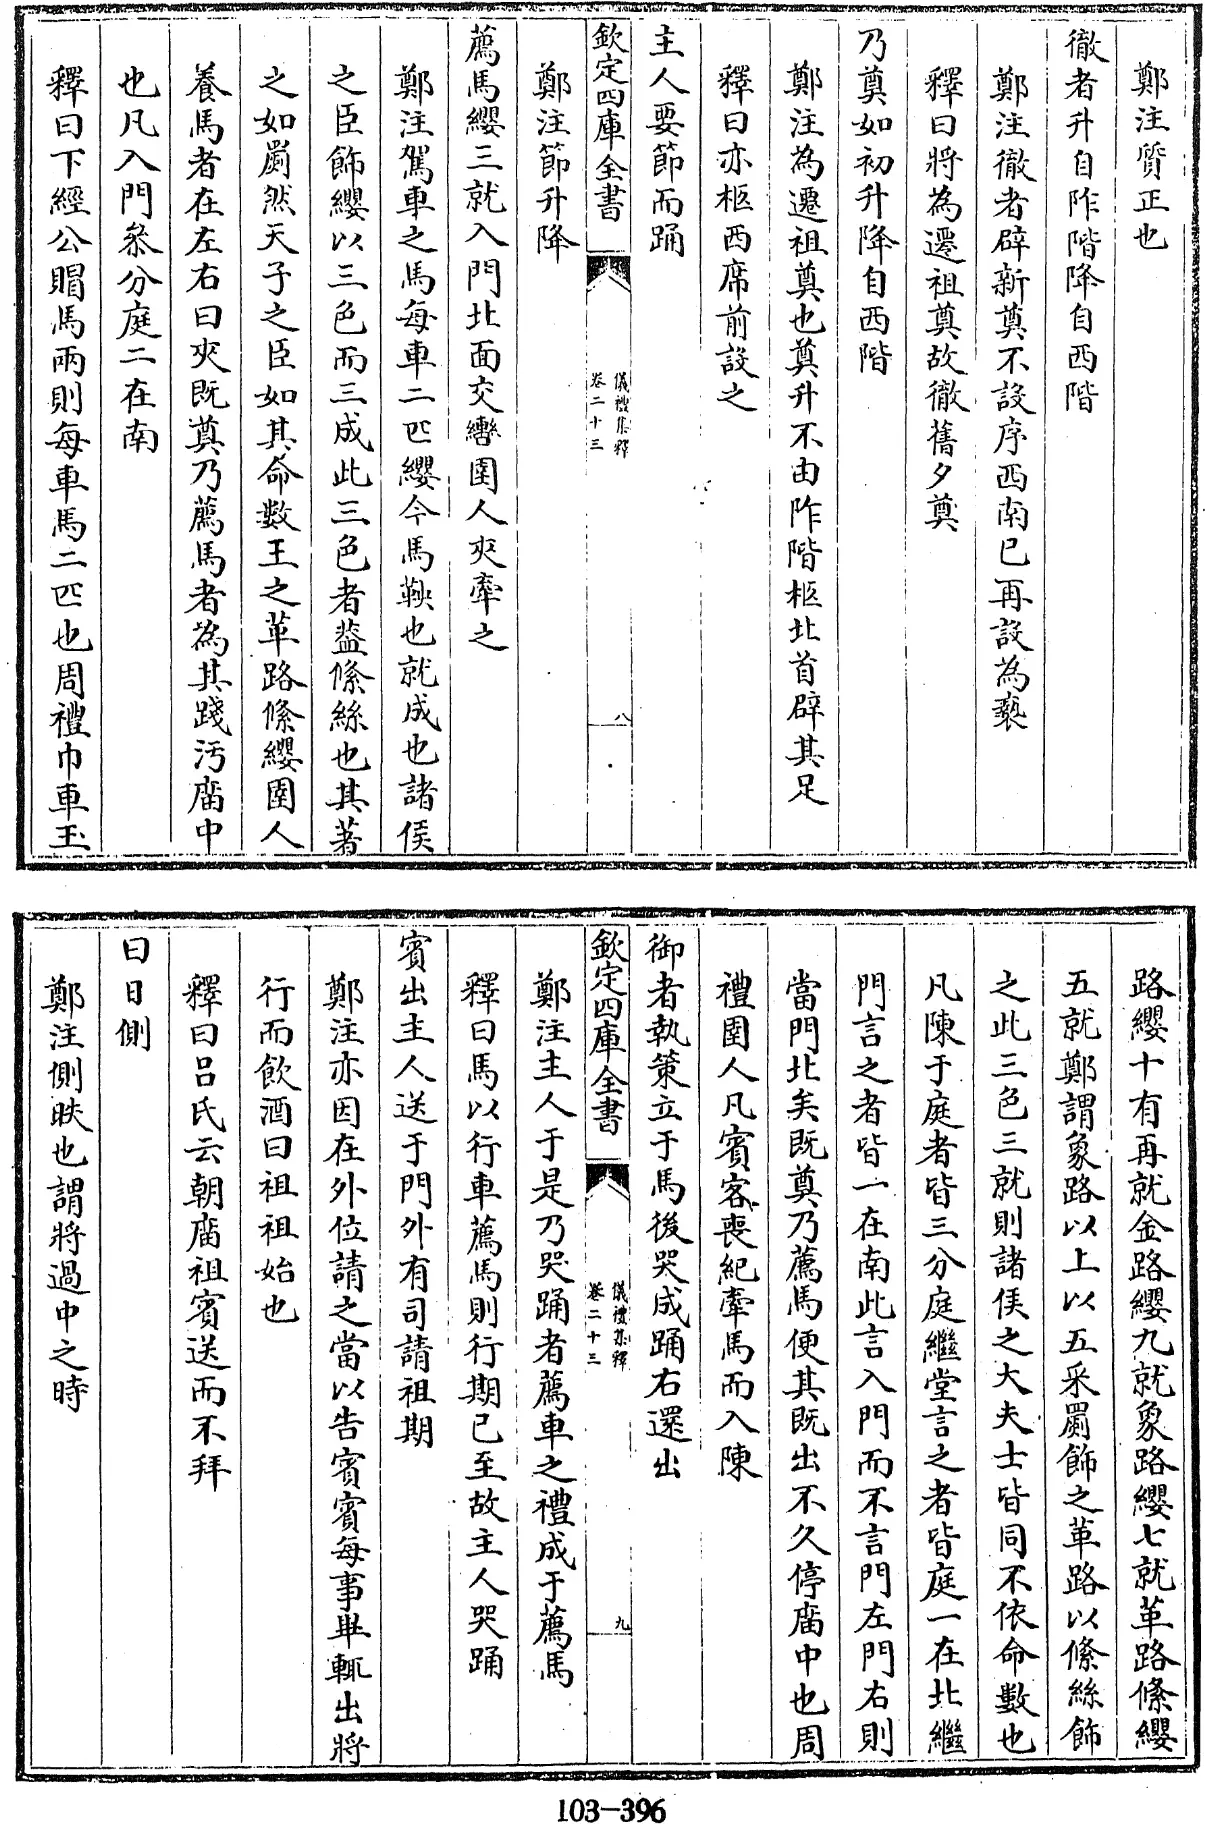 鄭注質正也
徹者升自阼階降自西階
鄭注徹者辟新奠不設序西南已再設為褻
釋曰將為遷祖奠故徹舊夕奠
乃奠如初升降自西階
鄭注為遷祖奠也奠升不由阼階柩北首辟其足
釋曰亦柩西席前設之
主人要節而踊
欽定四庫全書
儀禮集釋
卷二十三
八
鄭注節升降
薦馬纓三就入門北面交轡圉人夾牽之
鄭注駕車之馬每車二匹纓今馬鞅也就成也諸侯
之臣飾纓以三色而三成此三色者蓋絛絲也其著
之如罽然天子之臣如其命數王之革路絛纓圉人
養馬者在左右曰夾既奠乃薦馬者為其踐汚廟中
也凡入門叅分庭二在南
釋曰下經公賵馬兩則每車馬二匹也周禮巾車玉
路纓十有再就金路纓九就象路纓七就革路絛纓
五就鄭謂象路以上以五采罽飾之革路以絛絲飾
之此三色三就則諸侯之大夫士皆同不依命數也
凡陳于庭者皆三分庭繼堂言之者皆庭一在北繼
門言之者皆一在南此言入門而不言門左門右則
當門北矣既奠乃薦馬便其既出不久停廟中也周
禮圉人凡賓客喪紀牽馬而入陳
御者執策立于馬後哭成踊右還出
欽定四庫全書
儀禮集釋
卷二十三
九
鄭注主人于是乃哭踊者薦車之禮成于薦馬
釋曰馬以行車薦馬則行期已至故主人哭踊
賓出主人送于門外有司請祖期
鄭注亦因在外位請之當以告賓賓每事畢輒出將
行而飲酒曰祖祖始也
釋曰呂氏云朝廟祖賓送而不拜
曰日側
鄭注側昳也謂將過中之時
103-396